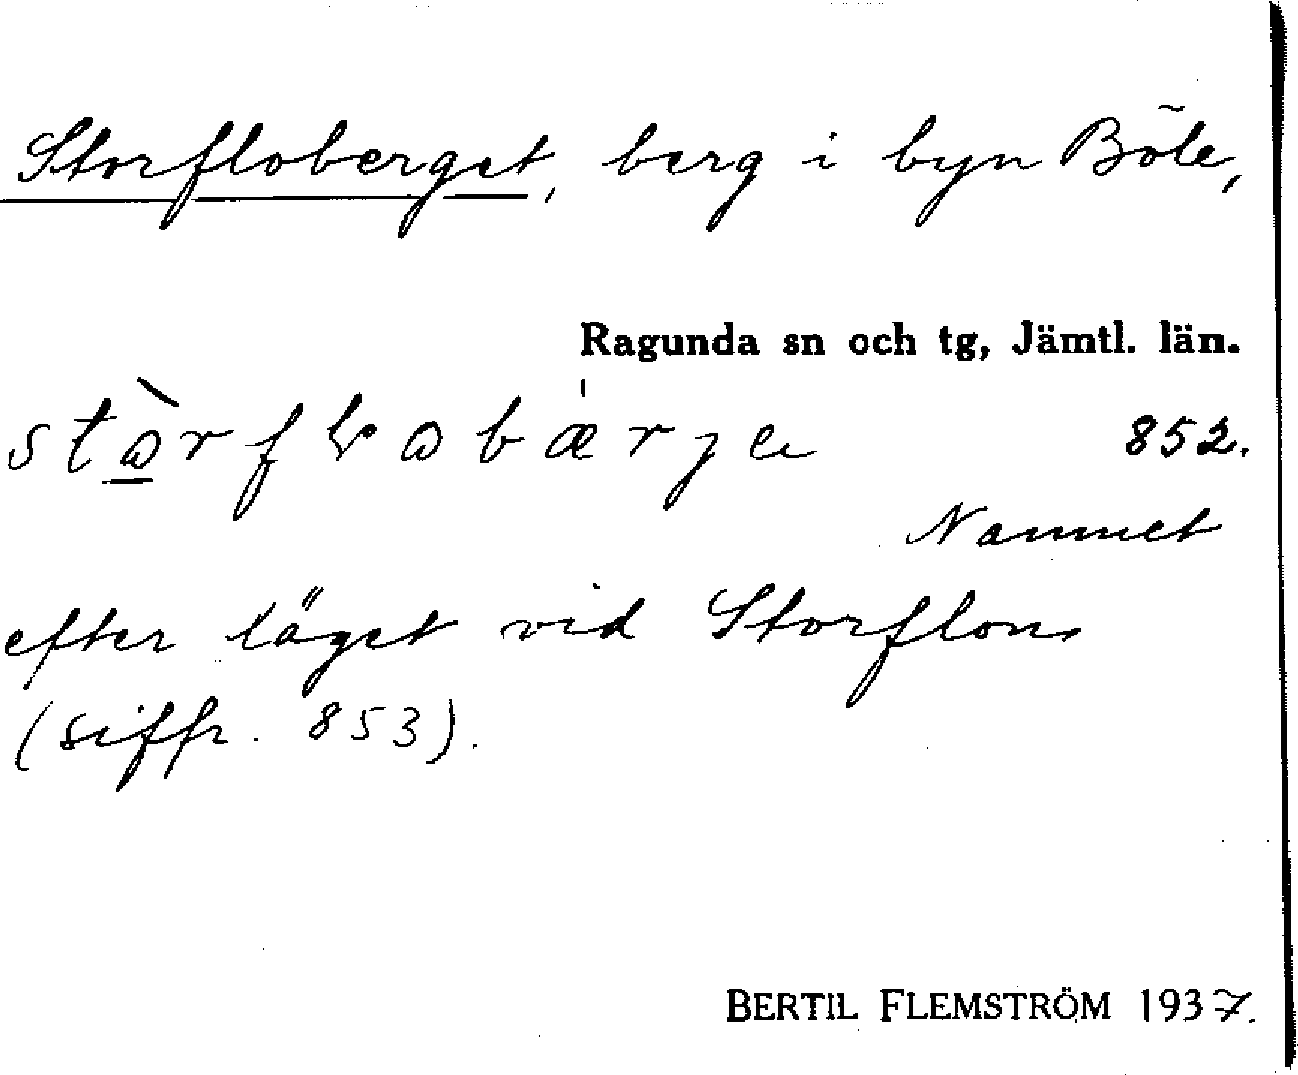 Storfloberget, berg i byn Böle,
Ragunda sn och tg, Jämtl. län.
852.
Namnet
efter läget vid Storflon
(siffr. 853).
BERTIL FLEMSTRÖM 1937.